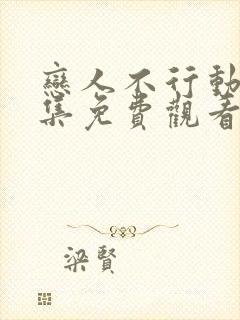 戀人不行動
集免費觀看
梁賢